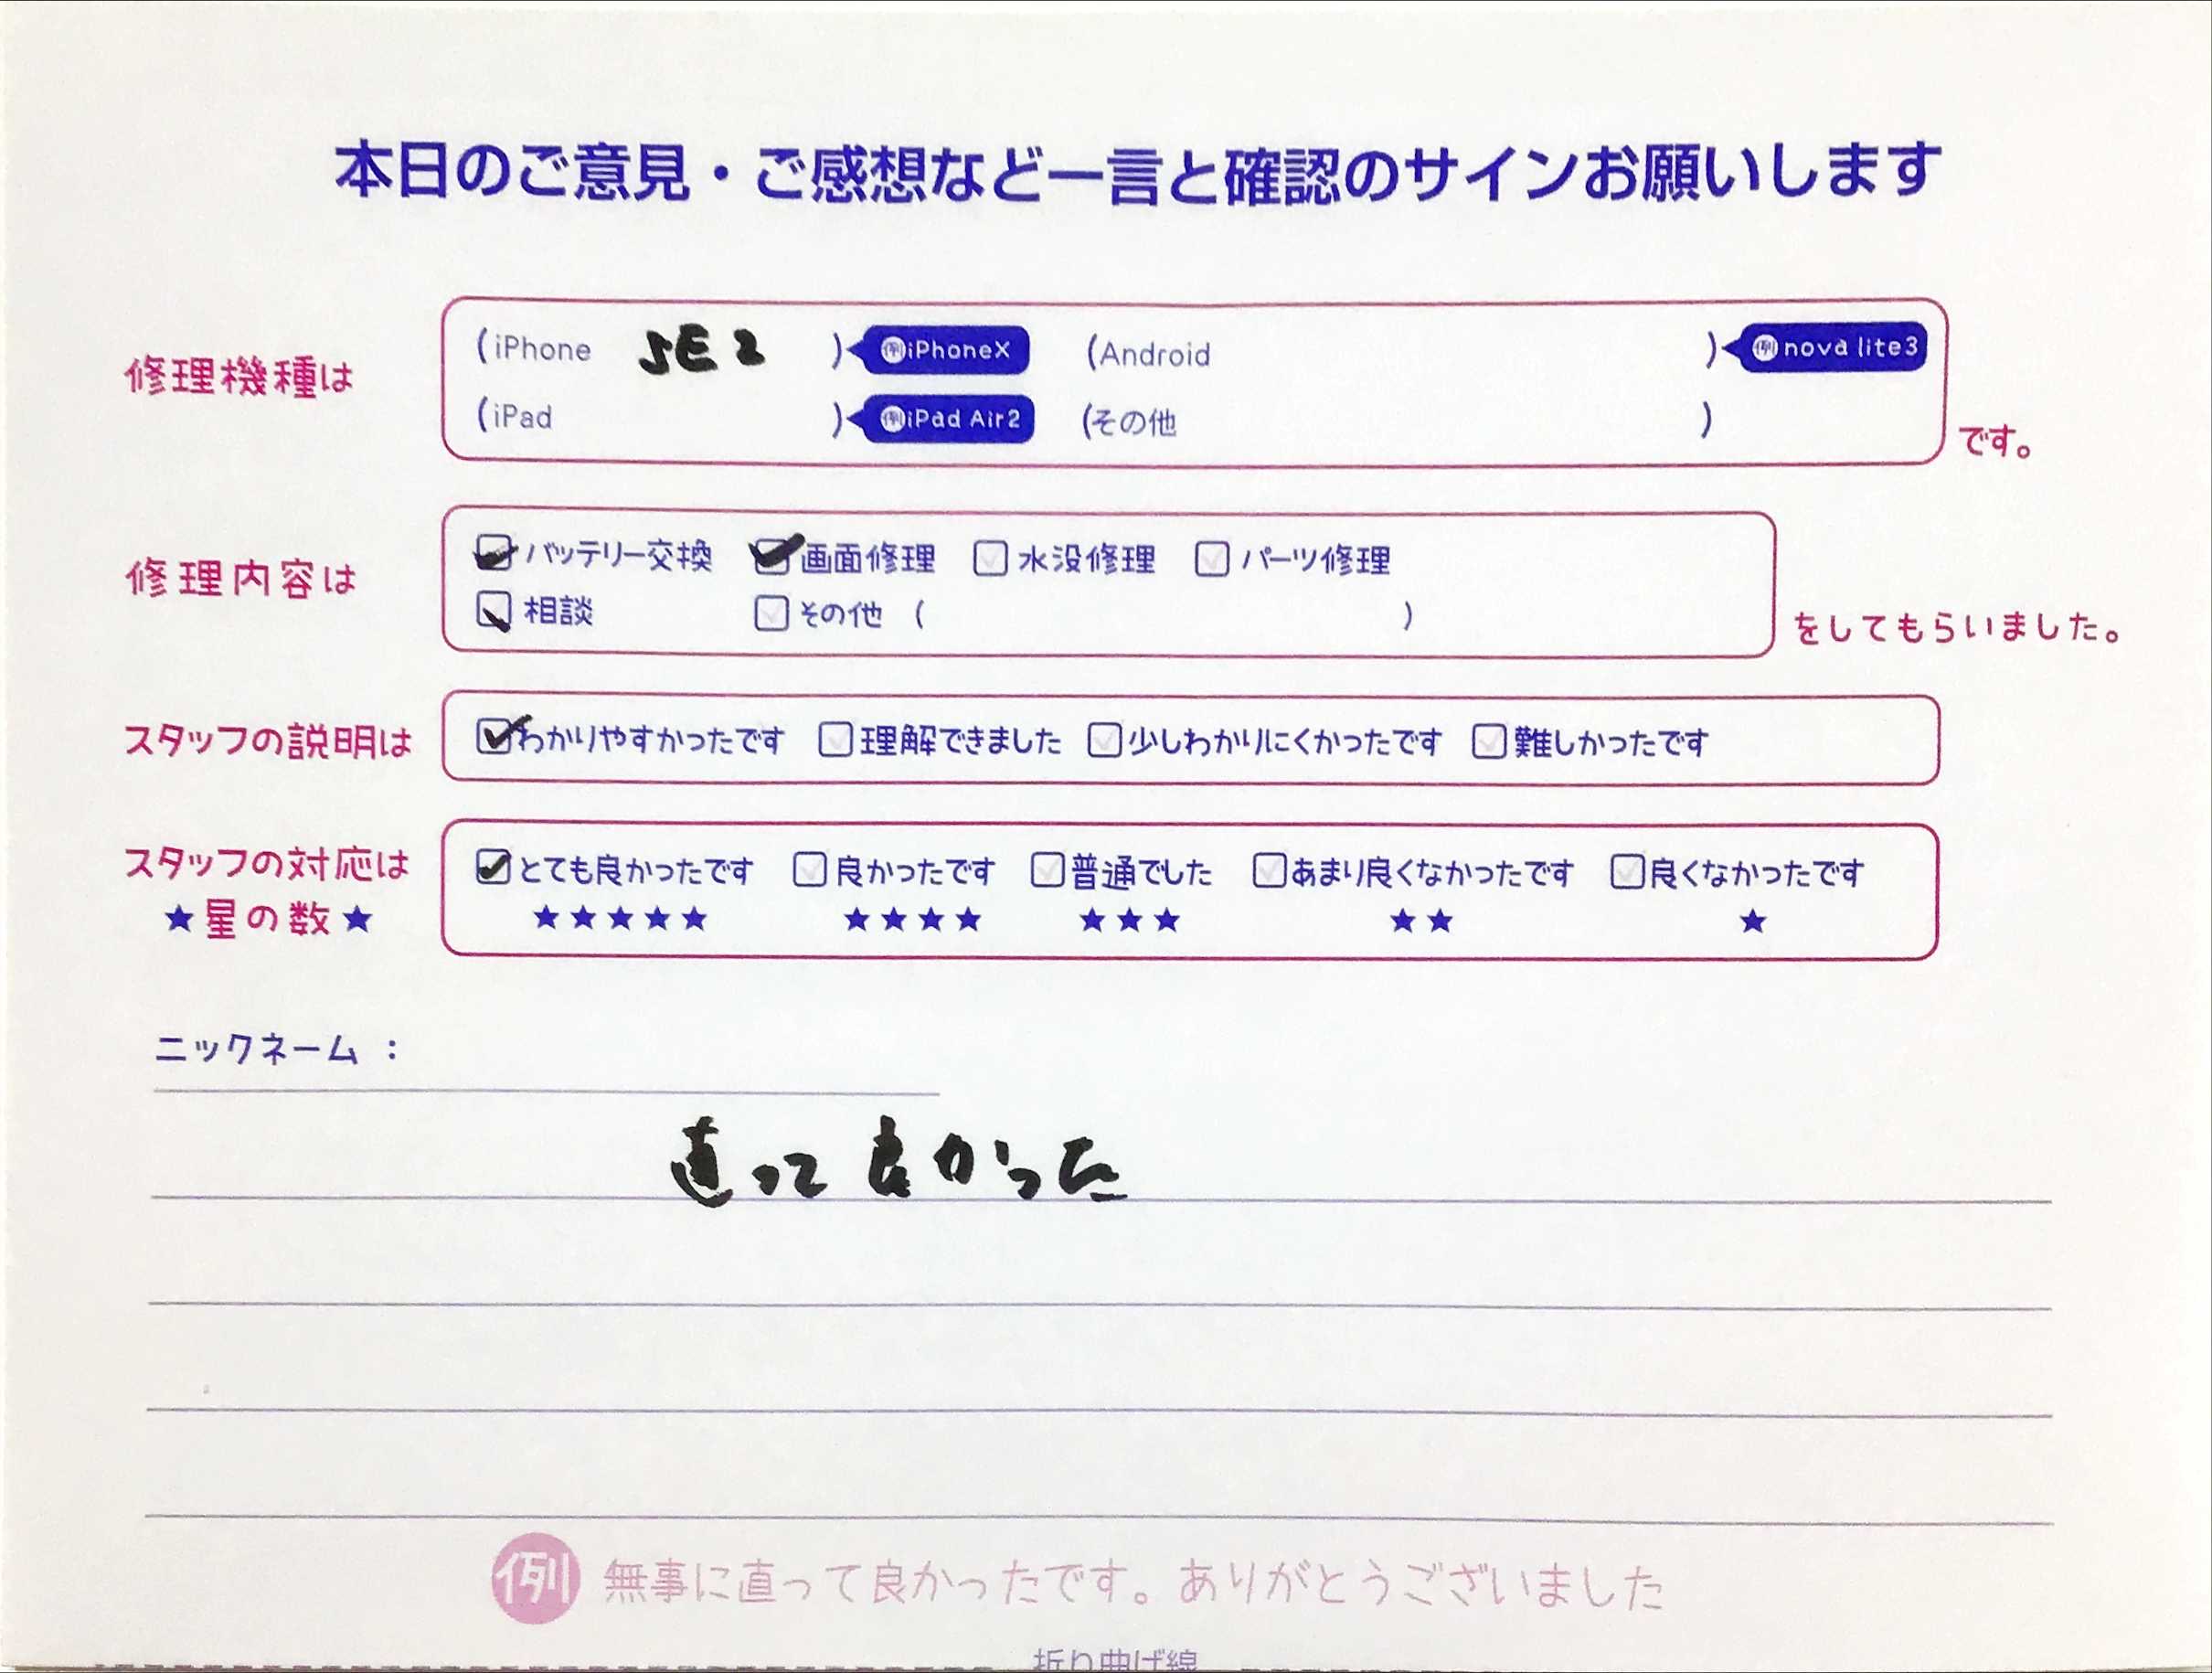 本日のご意見・ご感想など一言と確認のサインお願いします
修理機種は
(iPhone SE2 ) 例iPhoneX (Android ) 例nova lite3
(iPad ) 例iPad Air2 (その他 ) です。
修理内容は
バッテリー交換 画面修理 水没修理 パーツ修理
相談 その他 ( ) をしてもらいました。
スタッフの説明は わかりやすかったです 理解できました 少しわかりにくかったです 難しかったです
スタッフの対応は とても良かったです 良かったです 普通でした あまり良くなかったです 良くなかったです
★星の数★ ★★★★★ ★★★★ ★★★ ★★ ★
ニックネーム :
直って良かった
例 無事に直って良かったです。ありがとうございました
折り曲げ線